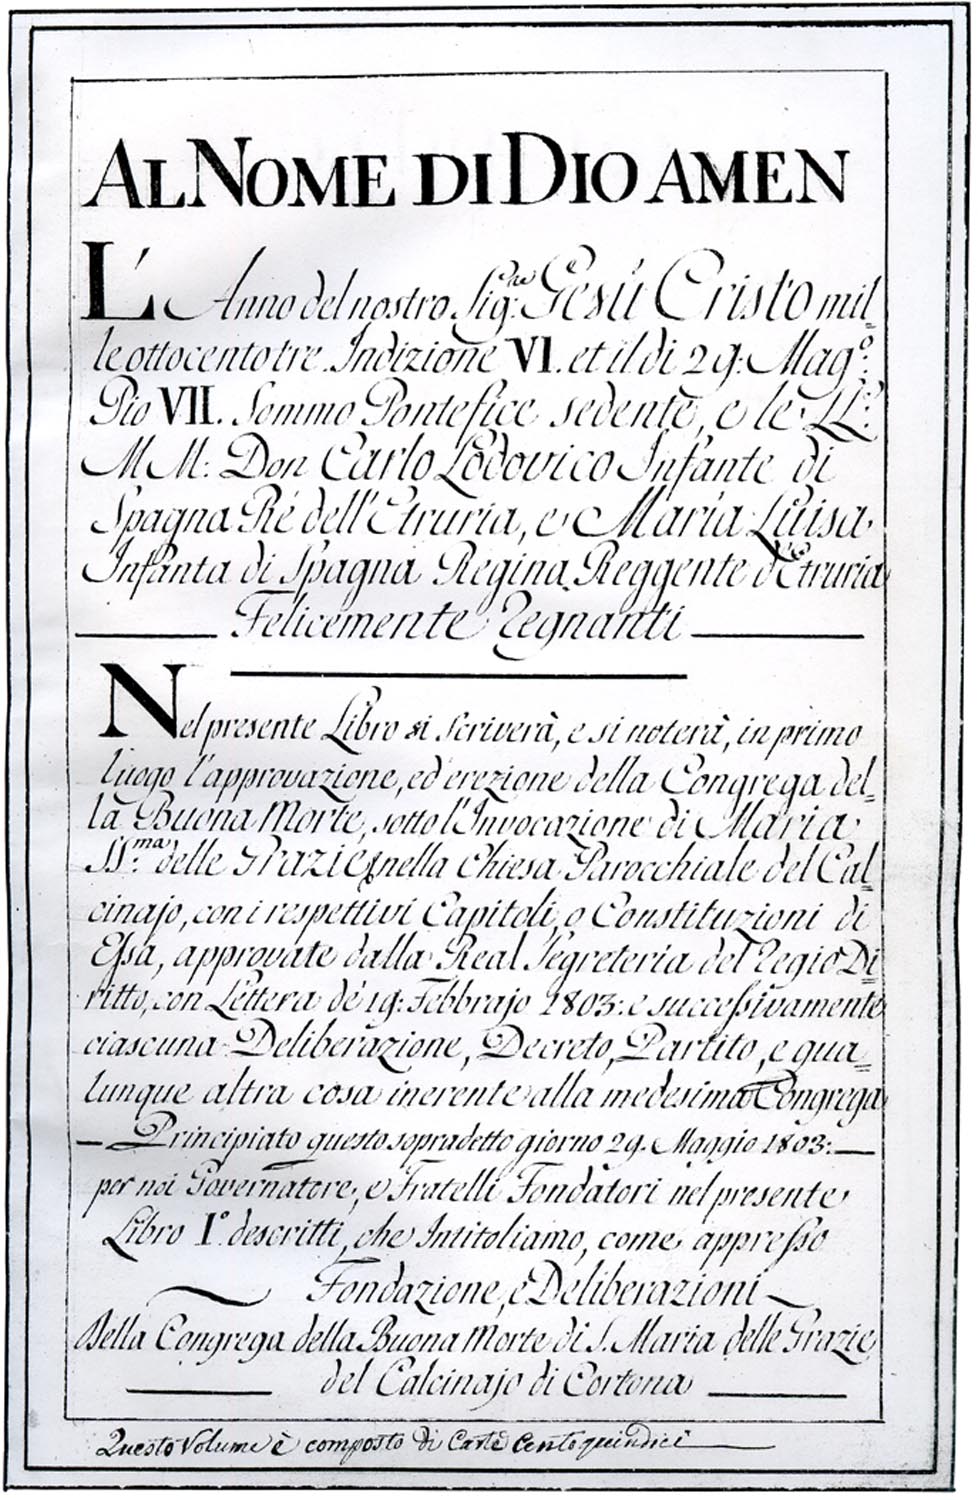 AL NOME DI DIO AMEN
L'Anno del nostro Sig:re Gesù Cristo mil=
le ottocento tre Indizione VI. et il di 29: Mag:o
Pio VII. Sommo Pontefice sedente, e le LL:
MM: Don Carlo Lodovico Infante di
Spagna Rè dell'Etruria, e Maria Luisa
Infanta di Spagna Regina Reggente d'Etruria
Felicemente Regnanti
Nel presente Libro si scriverà, e si noterà, in primo
luogo l'approvazione, ed erezione della Congrega del=
la Buona Morte, sotto l'Invocazione di Maria
SS:ma delle Grazie, nella Chiesa Parocchiale del Cal=
cinajo, con i respettivi Capitoli, o Constituzioni di
Essa, approvate dalla Real Segreteria del Regio Di=
ritto, con Lettera de' 19: Febbrajo 1803: e successivamente
ciascuna Deliberazione, Decreto, Partito, e qua=
lunque altra cosa inerente alla medesima Congrega
Principiato questo sopradetto giorno 29. Maggio 1803:
per noi Governatore, e Fratelli Fondatori nel presente
Libro I.o descritti, che Intitoliamo, come appresso
Fondazione, e Deliberazioni
Della Congrega della Buona Morte di S. Maria delle Grazie
del Calcinajo di Cortona
Questo Volume è composto di Carte Centoquindici